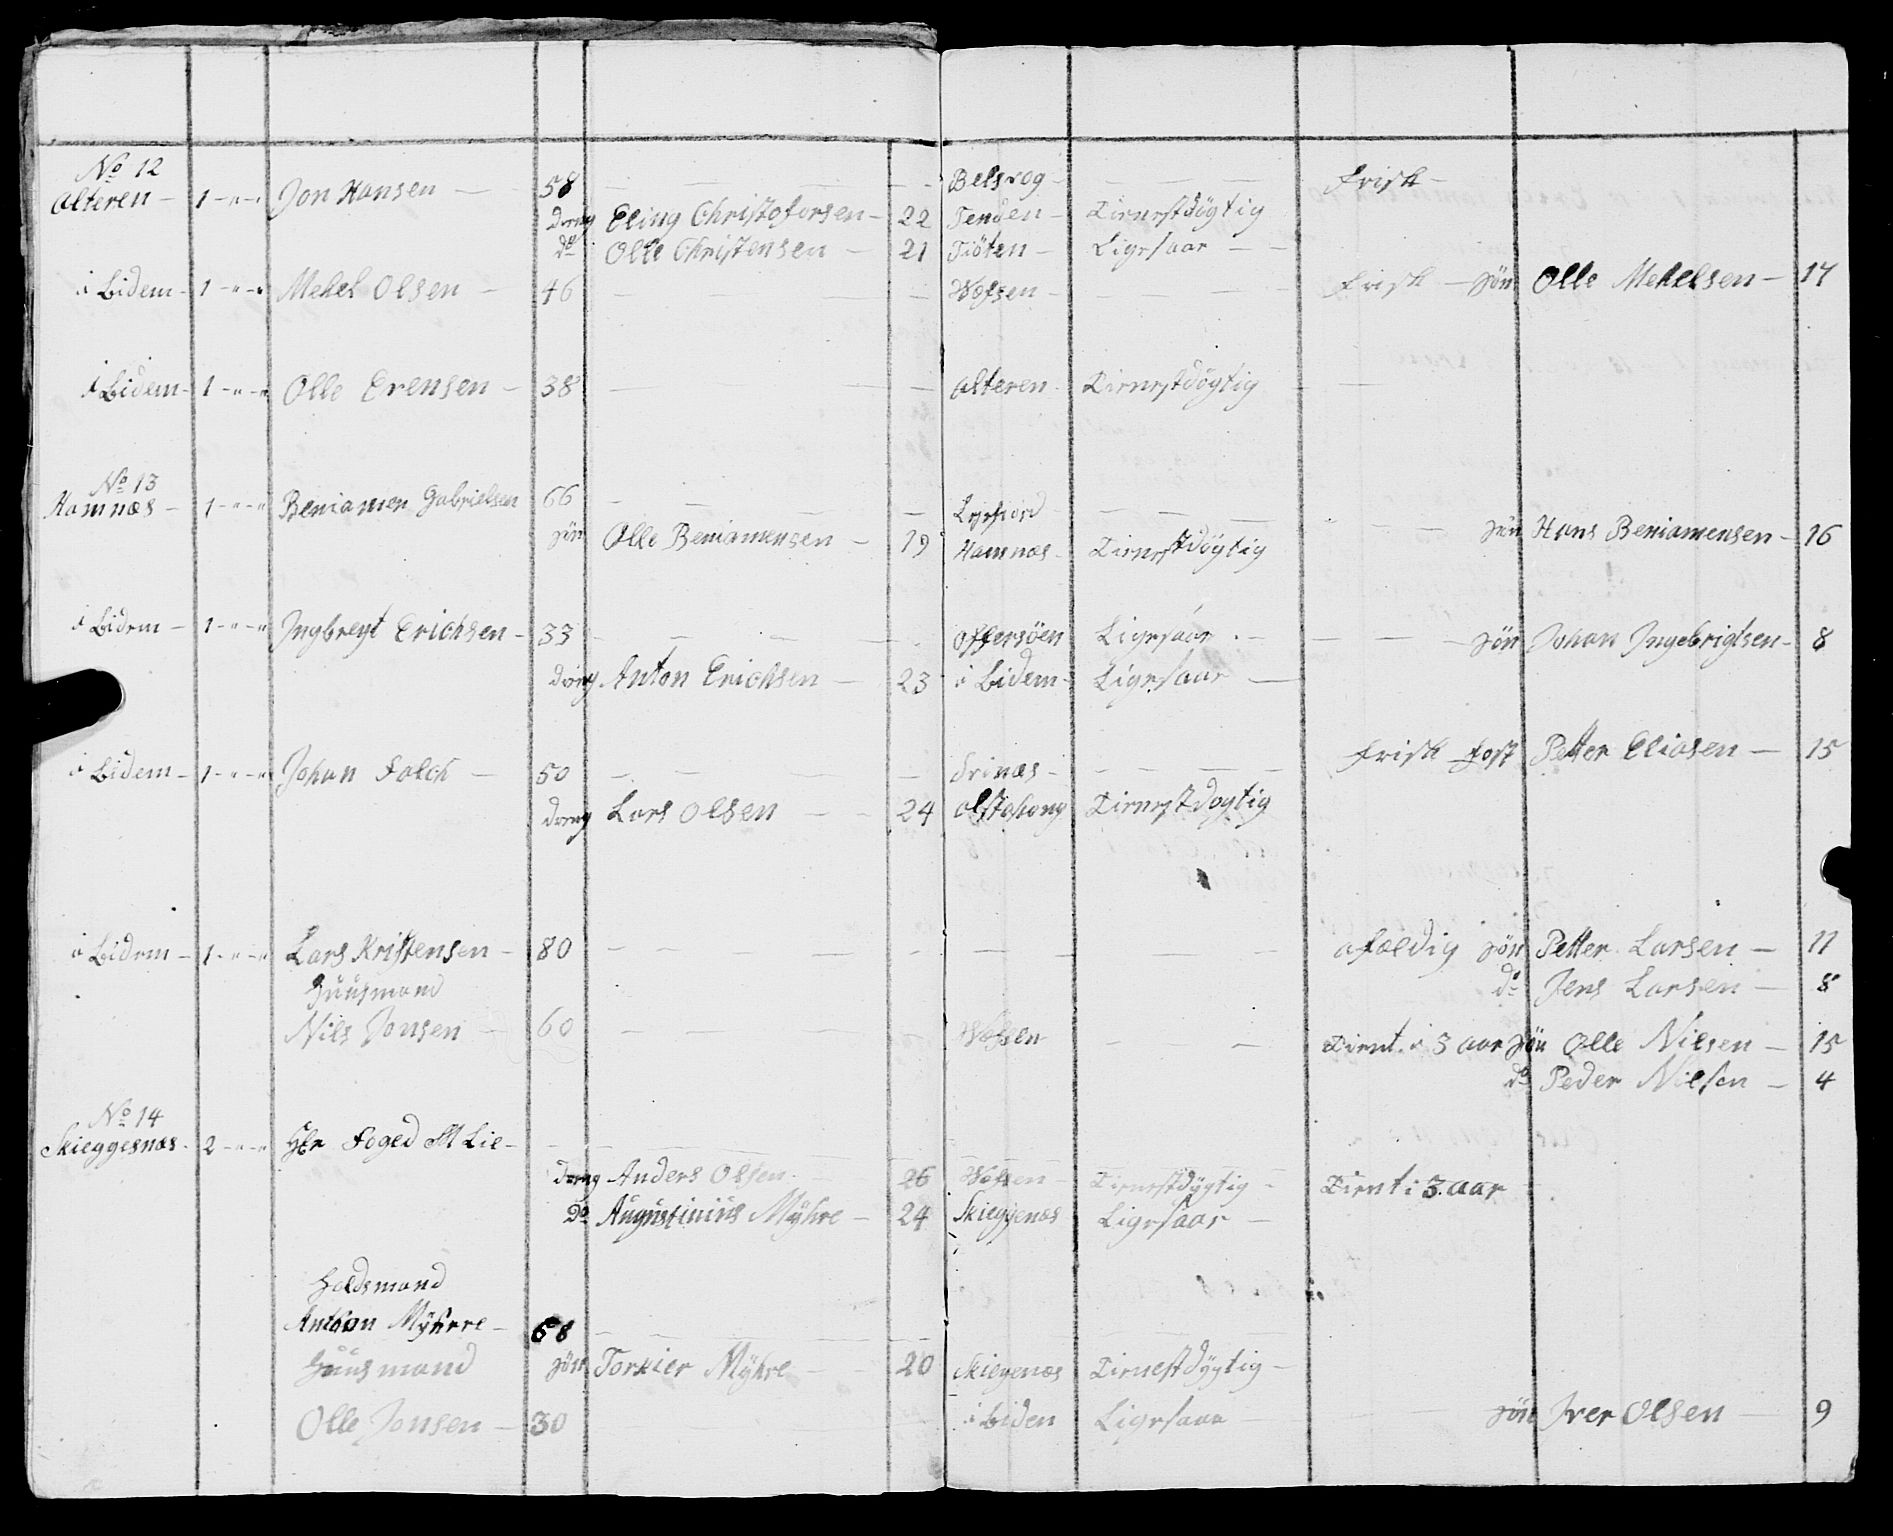 No 12
Alteren - 1 - " - " Jon Hansen - 58 - Belsvog - Frisk -
Dreng Eling Christofersen - 22 Tenden - Tienestdögtig
do Olle Christensen - 21 Tiöten - Ligesaar -
i Bidem - 1 - " - " Mekel Olsen - 46 - Wefsen - Frisk - Sön Olle Mekelsen - 17
i Bidem - 1 - " - " Olle Erensen - 38 - Alteren - Tienestdögtig -
No 13
Hamnæs - 1 - " - " Beniamen Gabrielsen 66 - Leyrfiord -
Sön Olle Beniamensen - 19 Hamnæs - Tienestdögtig - Sön Hans Beniamensen - 16
i Bidem - 1 - " - " Jngbregt Erichsen - 33 - Offersöen Ligesaar - Sön Johan Jngebrigtsen - 8
Dreng Anton Erichsen - 23 i Bidem - Ligesaar -
i Bidem - 1 - " - " Johan Falch - 50 - - Frisk - Fost Petter Eliasen - 15
Dreng Lars Olsen - 24 Alstahoug Tienestdogtig
i Bidem - 1 - " - " Lars Kristensen - 80 - afældig Sön Petter Larsen - 11
Huusmand do Jens Larsen - 8
Nils Jonsen - 60 - Wefsen - Tient i 3 aar Sön Olle Nilsen - 15
do Peder Nilsen - 4
No 14
Skieggesnæs - 2 - " - " Hr Foged M Lie -
Dreng Anders Olsen - 26 Wefsen - Tienestdygtig - Tient i 3 aar
do Augustinius Mÿhre - 24 Skieggenæs Ligesaar -
Holdsmand
Anthon Mÿhrre - 68 -
Huusmand Sön Torkier Mÿhre - 20 Skiegenæs Tienestdÿgtig -
Olle Jonsen - 30 - i Biden Ligesaar - Sön Iver Olsen - 9